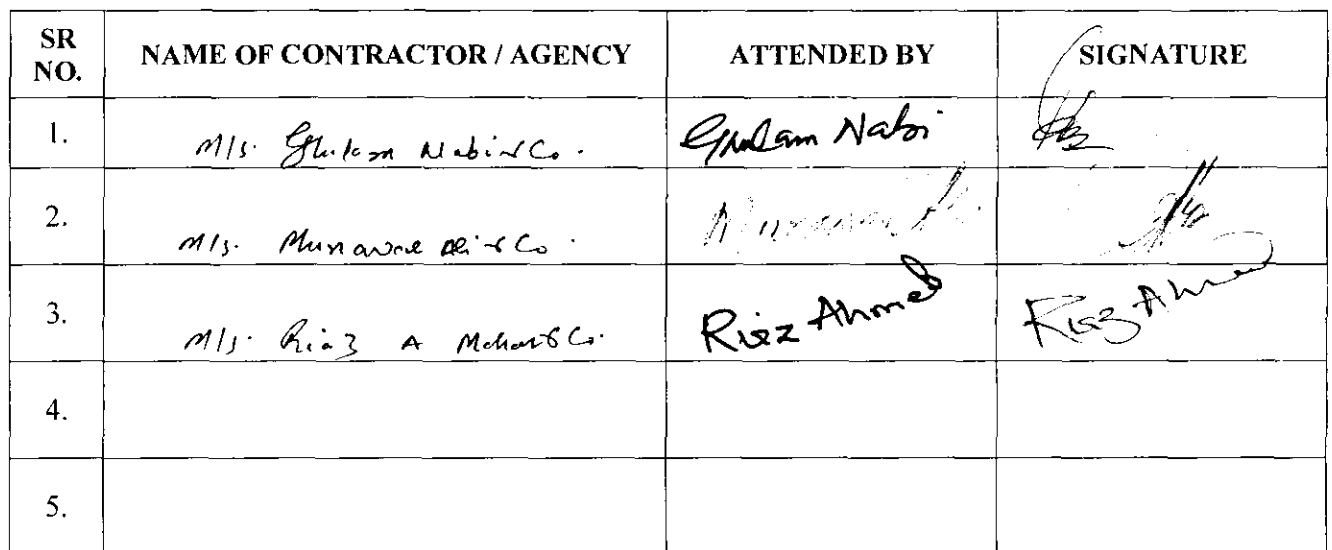 SR NO. NAME OF CONTRACTOR / AGENCY ATTENDED BY SIGNATURE
1. M/s. Ghulam Nabi & Co. Ghulam Nabi
2. M/s. Munawar Ali & Co. Munawar
3. M/s. Riaz A Mahar & Co. Riaz Ahmed Riaz Ahmed
4.
5.